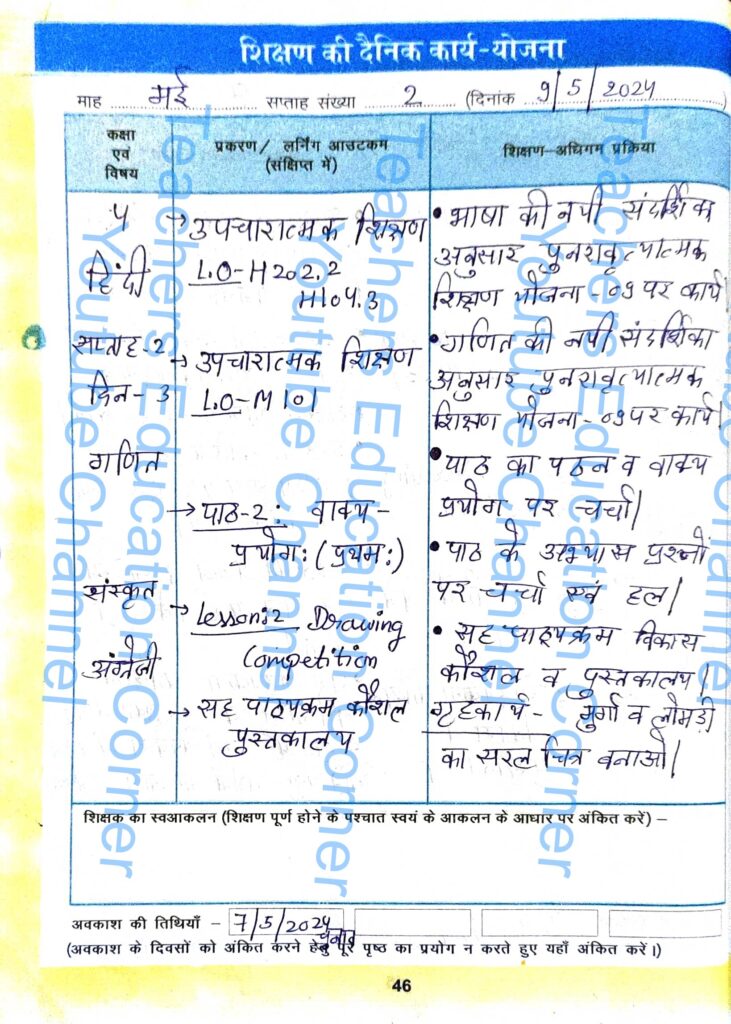 शिक्षण की दैनिक कार्य-योजना
माह मई सप्ताह संख्या 2 (दिनांक 9/5/2024
कक्षा
एवं
विषय
प्रकरण/ लर्निंग आउटकम
(संक्षिप्त में)
शिक्षण-अधिगम प्रक्रिया
5
हिंदी
सप्ताह-2
दिन-3
गणित
संस्कृत
अंग्रेजी
→ उपचारात्मक शिक्षण
L.O-H202.2
H104.3
→ उपचारात्मक शिक्षण
L.O-M101
→ पाठ-2: वाक्य-
प्रयोग: (प्रथम:)
→ Lesson:2 Drawing
Competition
→ सह पाठ्यक्रम कौशल
पुस्तकालय
• भाषा की नयी संदर्शिका
अनुसार पुनरावृत्यात्मक
शिक्षण योजना-09 पर कार्य
• गणित की नयी संदर्शिका
अनुसार पुनरावृत्यात्मक
शिक्षण योजना-09 पर कार्य|
• पाठ का पठन व वाक्य
प्रयोग पर चर्चा|
• पाठ के अभ्यास प्रश्नों
पर चर्चा एवं हल|
• सह पाठ्यक्रम विकास
कौशल व पुस्तकालय|
गृहकार्य- मुर्गा व लोमड़ी
का सरल चित्र बनाओ|
शिक्षक का स्वआकलन (शिक्षण पूर्ण होने के पश्चात स्वयं के आकलन के आधार पर अंकित करें) –
अवकाश की तिथियाँ – 7/5/2024
चुनाव
(अवकाश के दिवसों को अंकित करने हेतु पूरे पृष्ठ का प्रयोग न करते हुए यहाँ अंकित करें।)
46
Teachers Education Corner
Youtube Channel
Teachers Education Corner
Youtube Channel
Teachers Education Corner
Youtube Channel